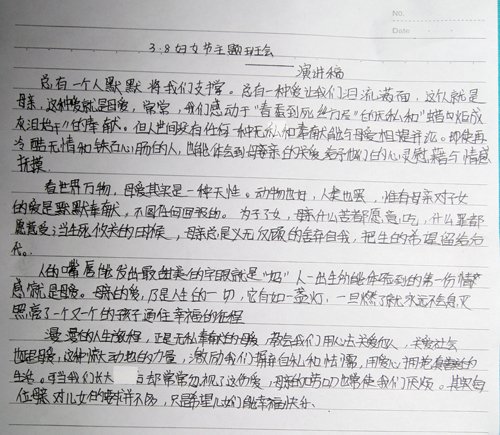 No.
Date
3.8妇女节主题班会
演讲稿
总有一个人默默将我们支撑。总有一种爱让我们泪流满面,这个人就是
母亲,这种爱就是母爱,常常,我们感动于"春蚕到死丝方尽"的无私和"蜡炬成
灰泪始干"的奉献。但人世间没有任何一种无私和奉献能与母爱相提并论。即使再
冷酷无情和铁石心肠的人,也能体会到母亲的关爱给予他们的心灵慰藉与情感
抚摸.
看世界万物,母爱其实是一种天性。动物也好,人类也罢,唯有母亲对子女
的爱是默默奉献,不图任何回报的。为了子女,母亲什么苦都愿意吃,什么罪都
愿意受;当生死攸关的时候,母亲总是义无反顾的舍弃自我,把生的希望留给后
代。
人的嘴唇能发出最甜美的字眼就是"妈"人一出生所能体验到的第一份情
感就是母爱。母亲的爱,乃是人生的一切,它宛如一盏灯,一旦燃了就永远不会熄灭
照亮了一个又一个的孩子通往幸福的征程
漫漫的人生旅程,正是无私奉献的母爱,带给我们用心去关爱他人,关爱社会
也是母爱,这种惊天动地的力量,激励我们摒弃自私和怯懦,用爱心拥抱
生活。可当我们长大 却常常忽视了这份爱,母亲的唠叨也常使我们厌烦。其实每
位母亲对儿女的要求并不多,只是希望儿女们能幸福快乐.